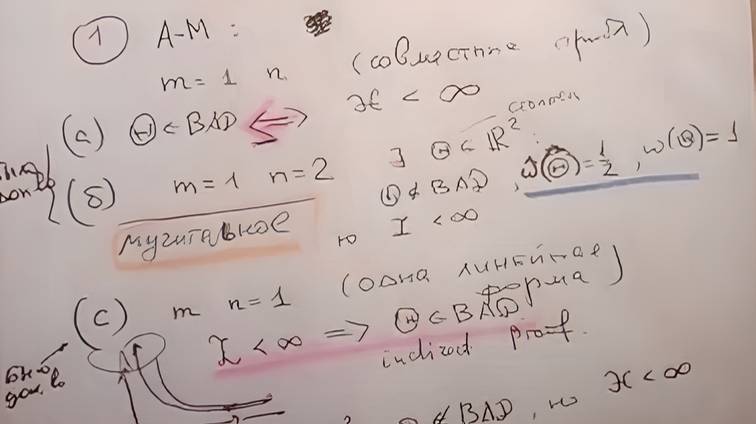 ① A-M :
m=1 n (совместные прибл)
(a) Θ ∈ BAD ⟺ ℋ < ∞
(б) m=1 n=2 ∃ Θ ∈ ℝ² :
Θ ∉ BAD, ŵ(Θ)=1/2, w(Θ)=1
мучительное но I < ∞
(c) m n=1 (одна линейная форма)
I < ∞ ⟹ Θ ∈ BAD
indirect proof.
Θ ∉ BAD, но ℋ < ∞